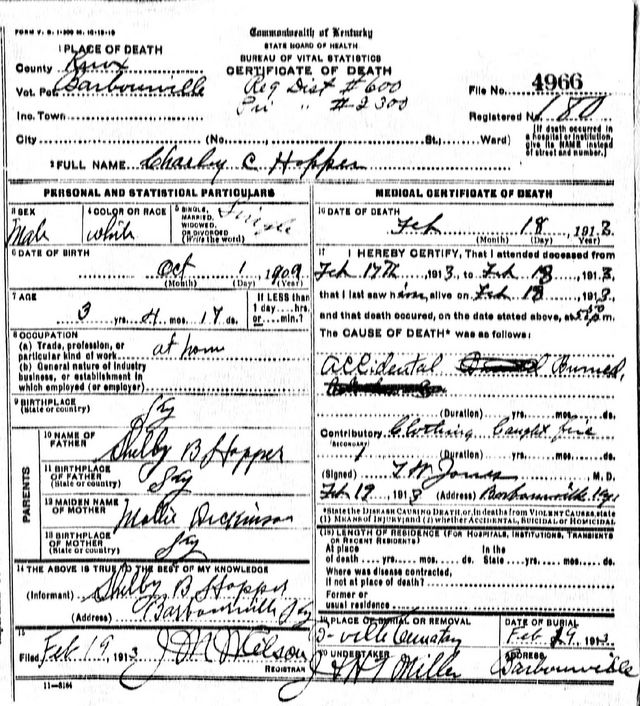 FORM V. S. 1-300 M. 10-13-10
Commonwealth of Kentucky
STATE BOARD OF HEALTH
BUREAU OF VITAL STATISTICS
CERTIFICATE OF DEATH
1 PLACE OF DEATH
County Knox
Vot. Pct. Barbourville
Reg Dist #600
Pri " #2300
File No. 4966
Registered No. 180
Inc. Town
[If death occurred in a hospital or institution, give its NAME instead of street and number.]
City (No. St.; Ward)
2 FULL NAME Charley C Hopper
PERSONAL AND STATISTICAL PARTICULARS
3 SEX Male
4 COLOR OR RACE white
5 SINGLE, MARRIED, WIDOWED, OR DIVORCED (Write the word) Single
6 DATE OF BIRTH
Oct 1, 1909
(Month) (Day) (Year)
7 AGE
3 yrs. 4 mos. 17 ds.
If LESS than 1 day....hrs. or....min.?
8 OCCUPATION
(a) Trade, profession, or particular kind of work at home
(b) General nature of industry business, or establishment in which employed (or employer)
9 BIRTHPLACE (State or country) Ky
PARENTS
10 NAME OF FATHER Shelby B Hopper
11 BIRTHPLACE OF FATHER (State or country) Ky
12 MAIDEN NAME OF MOTHER Mollie Dickinson
13 BIRTHPLACE OF MOTHER (State or country) Ky
14 THE ABOVE IS TRUE TO THE BEST OF MY KNOWLEDGE
(Informant) Shelby B Hopper
(Address) Barbourville Ky
15
Filed Feb 19, 1913 J M Wilson
REGISTRAR
11-5164
MEDICAL CERTIFICATE OF DEATH
16 DATE OF DEATH
Feb 18, 1913
(Month) (Day) (Year)
17 I HEREBY CERTIFY, That I attended deceased from
Feb 17th, 1913, to Feb 18, 1913,
that I last saw him alive on Feb 18, 1913,
and that death occured, on the date stated above, at m.
The CAUSE OF DEATH* was as follows:
Accidental Burned,
(Duration) yrs. mos. ds.
Contributory Clothing Caught fire
(SECONDARY)
(Duration) yrs. mos. ds.
(Signed) T W Jones M. D.
Feb 19, 1913 (Address) Barbourville Ky
*State the DISEASE CAUSING DEATH, or, in deaths from VIOLENT CAUSES, state
(1) MEANS OF INJURY; and (2) whether ACCIDENTAL, SUICIDAL OR HOMICIDAL
(18) LENGTH OF RESIDENCE (FOR HOSPITALS, INSTITUTIONS, TRANSIENTS OR RECENT RESIDENTS)
At place of death yrs. mos. ds. In the State yrs. mos. ds.
Where was disease contracted,
If not at place of death?
Former or usual residence
19 PLACE OF BURIAL OR REMOVAL
B-ville Cemetery
DATE OF BURIAL
Feb 19, 1913
20 UNDERTAKER
Miller
ADDRESS
Barbourville